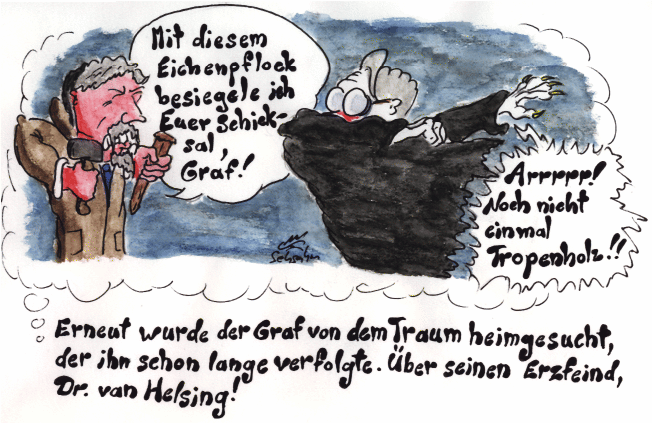 Mit diesem
Eichenpflock
besiegele ich
Euer Schick-
sal,
Graf!
Arrrrr!
Noch nicht
einmal
Tropenholz!!
Erneut wurde der Graf von dem Traum heimgesucht,
der ihn schon lange verfolgte. Über seinen Erzfeind,
Dr. van Helsing!